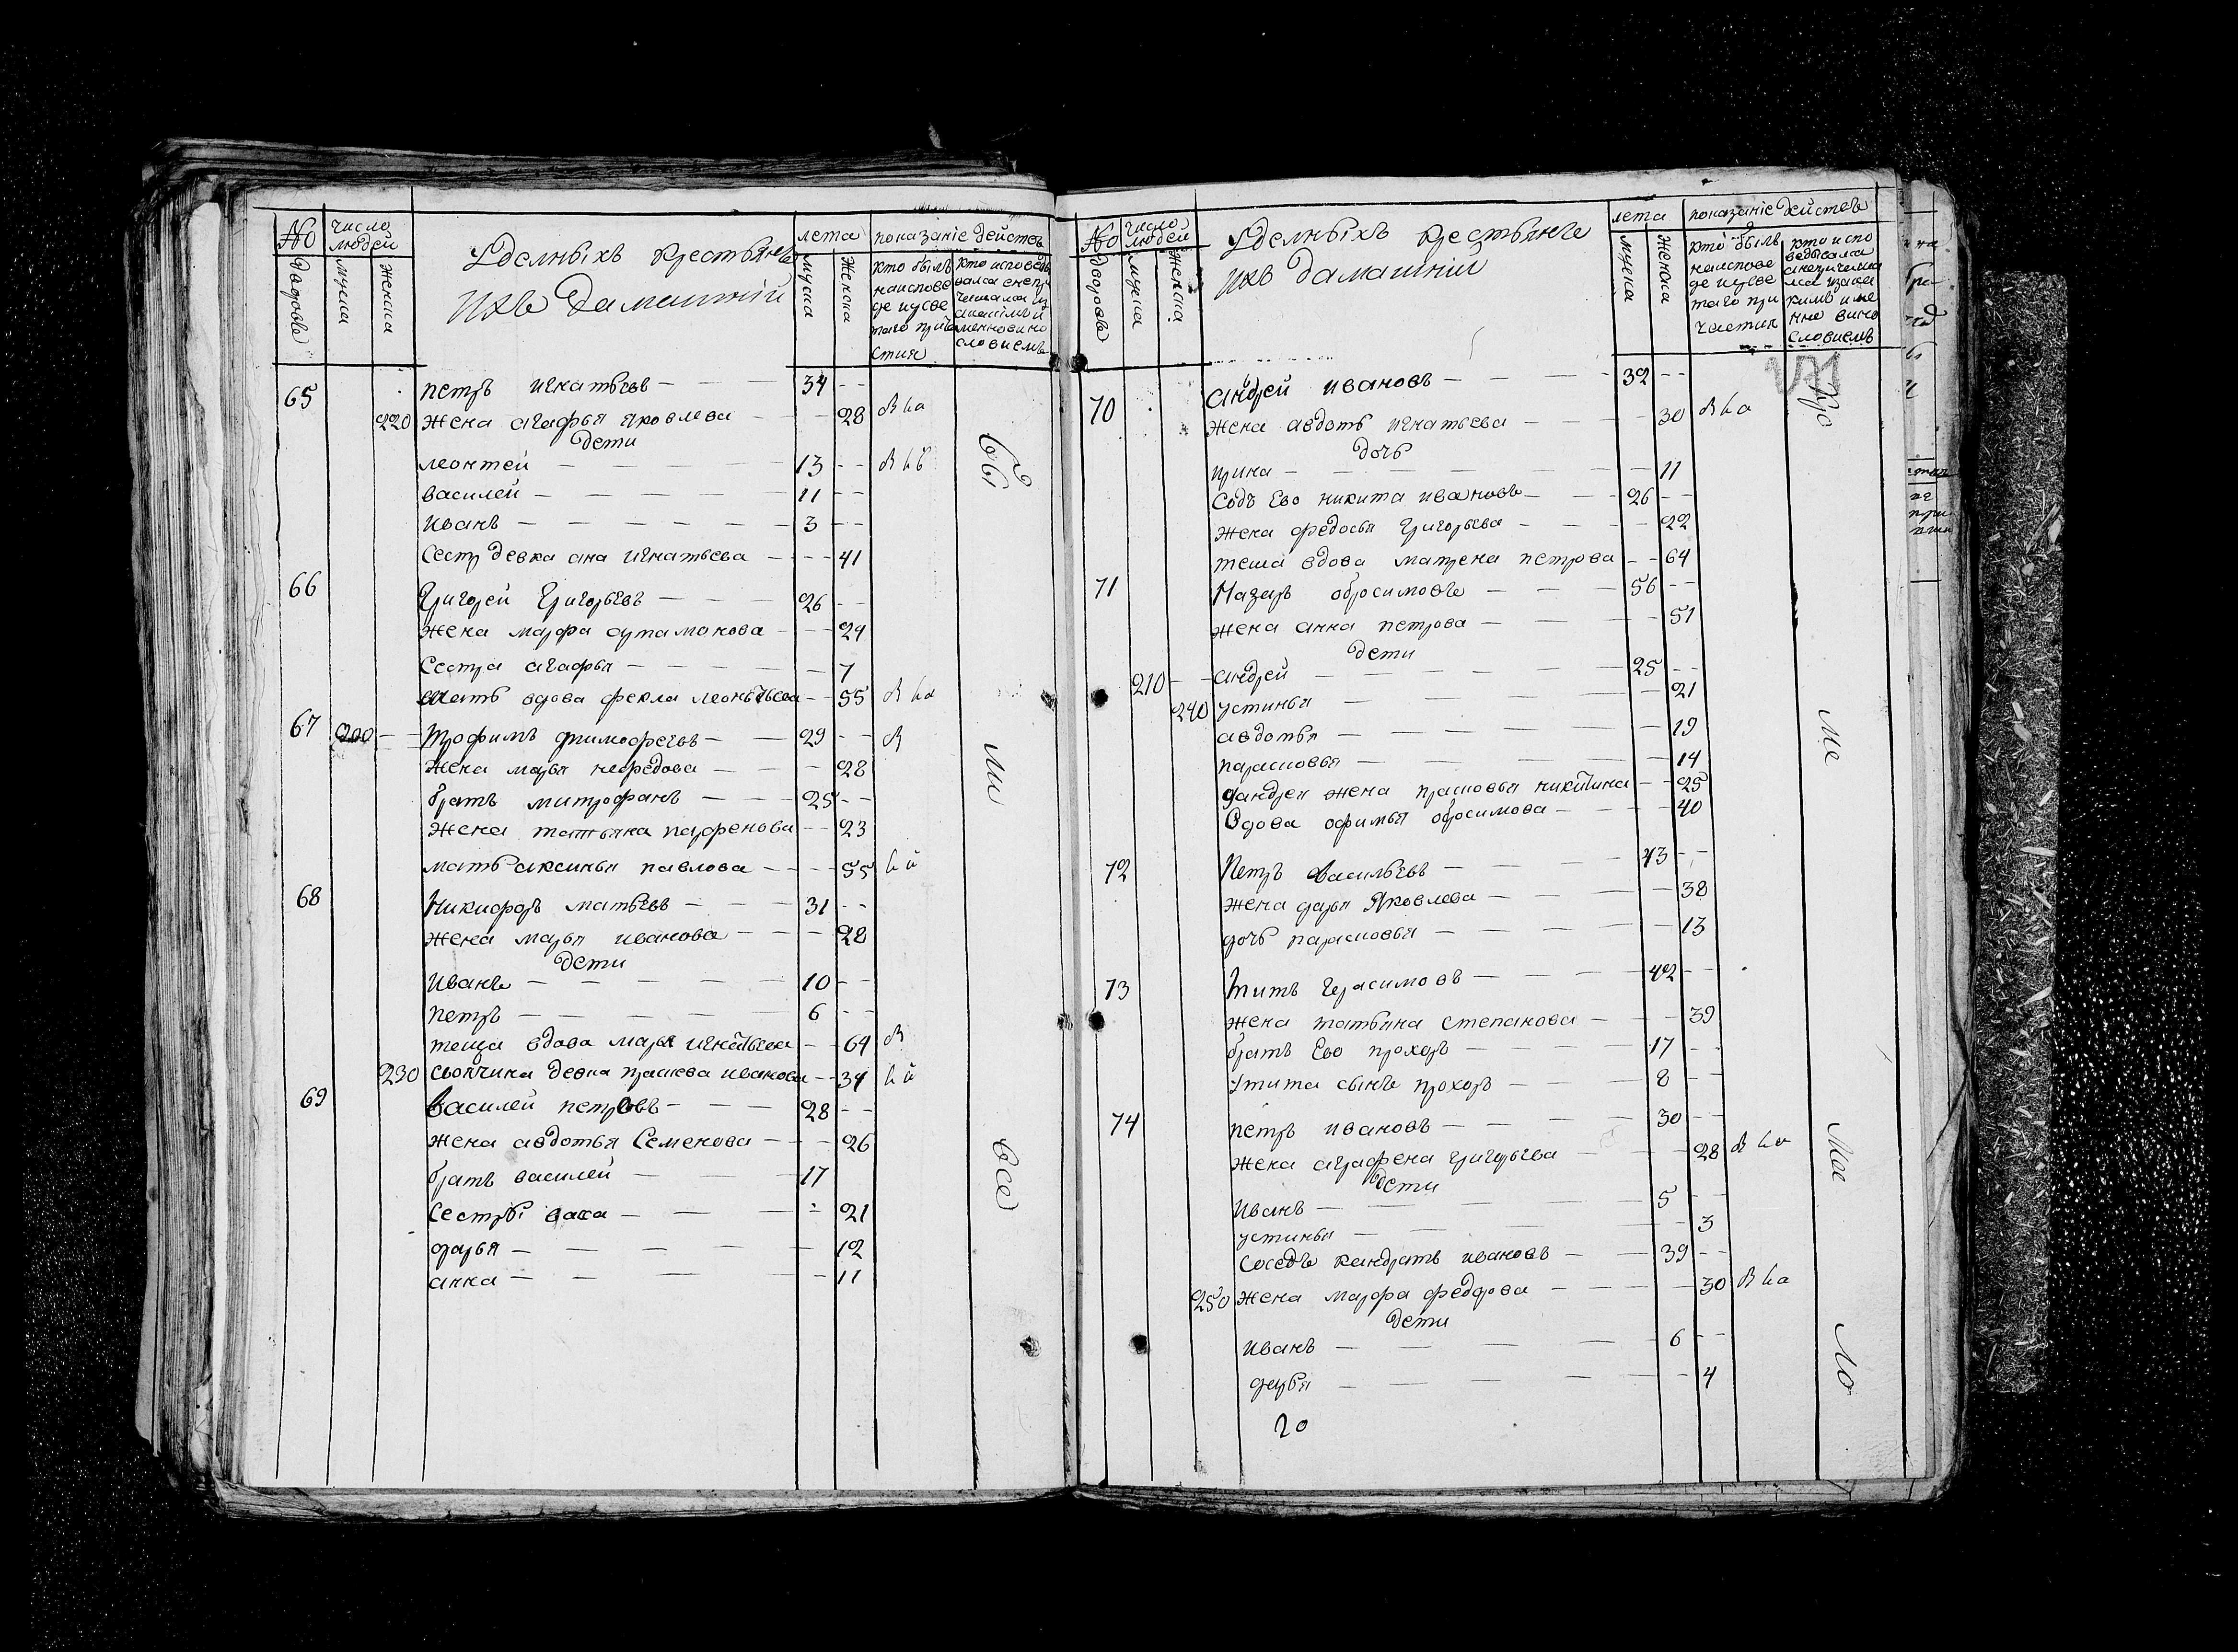 No
число людей
лета
показанiе действъ
Уделныхъ крестьяне
ихъ дамашнiи
дворовъ
мужска
женска
мужска
женска
кто былъ
наиспове
де иусве
таго при
стия
65 петръ игнатьевъ — 34
220 жена агафья яковлева — 28
дети
леонтей — 13
василей — 11
иванъ — 3
сестр девка ана игнатьева — 41
66 Григорей Григорьевъ — 26
жена марфа артамонова — 24
сестра агафья — 7
мать вдова фекла леоньтьева — 55
67 200 Трофимъ тимофеевъ — 29
жена марья нефедова — 28
братъ митрофанъ — 25
жена татьяна парфенова — 23
мать аксинья павлова — 55
68 Никифоръ матвеевъ — 31
жена марья иванова — 28
дети
иванъ — 10
петръ — 6
теща вдова марья игнатьева — 64
230 своячина девка прасковa иванова — 34
69 василей петровъ — 28
жена авдотья Семенова — 26
братъ василей — 17
сестры васа — 21
дарья — 12
анна — 11
бб
ли
все
No
число людей
лета
показанiе действъ
Уделныхъ крестьяне
ихъ дамашнiи
дворовъ
мужска
женска
мужска
женска
кто былъ
наиспове
де иусве
таго при
частия
кто испо
ведывался
171
70 андрей ивановъ — 32
жена авдотья игнатьева — 30
дочь
ирина — 11
Содъ Ево никита ивановъ — 26
жена федосья григорьева — 22
теща вдова матрена петрова — 64
71 Назаръ обросимовъ — 56
жена анна петрова — 51
дети
210 андрей — 25
240 устинья — 21
авдотья — 19
парасковья — 14
уандрея жена прасковья никитина — 25
вдова афимья обросимова — 40
72 Петръ васильевъ — 43
жена дарья Яковлева — 38
дочь парасковья — 13
73 титъ герасимовъ — 42
жена татьяна степанова — 39
братъ Ево прохоръ — 17
утита сынъ прохоръ — 8
74 петръ ивановъ — 30
жена аграфена григорьева — 28
дети
иванъ — 5
устинья — 3
соседъ кандратъ ивановъ — 39
250 жена марфа федорова — 30
дети
иванъ — 6
дарья — 4
20
ме
ло